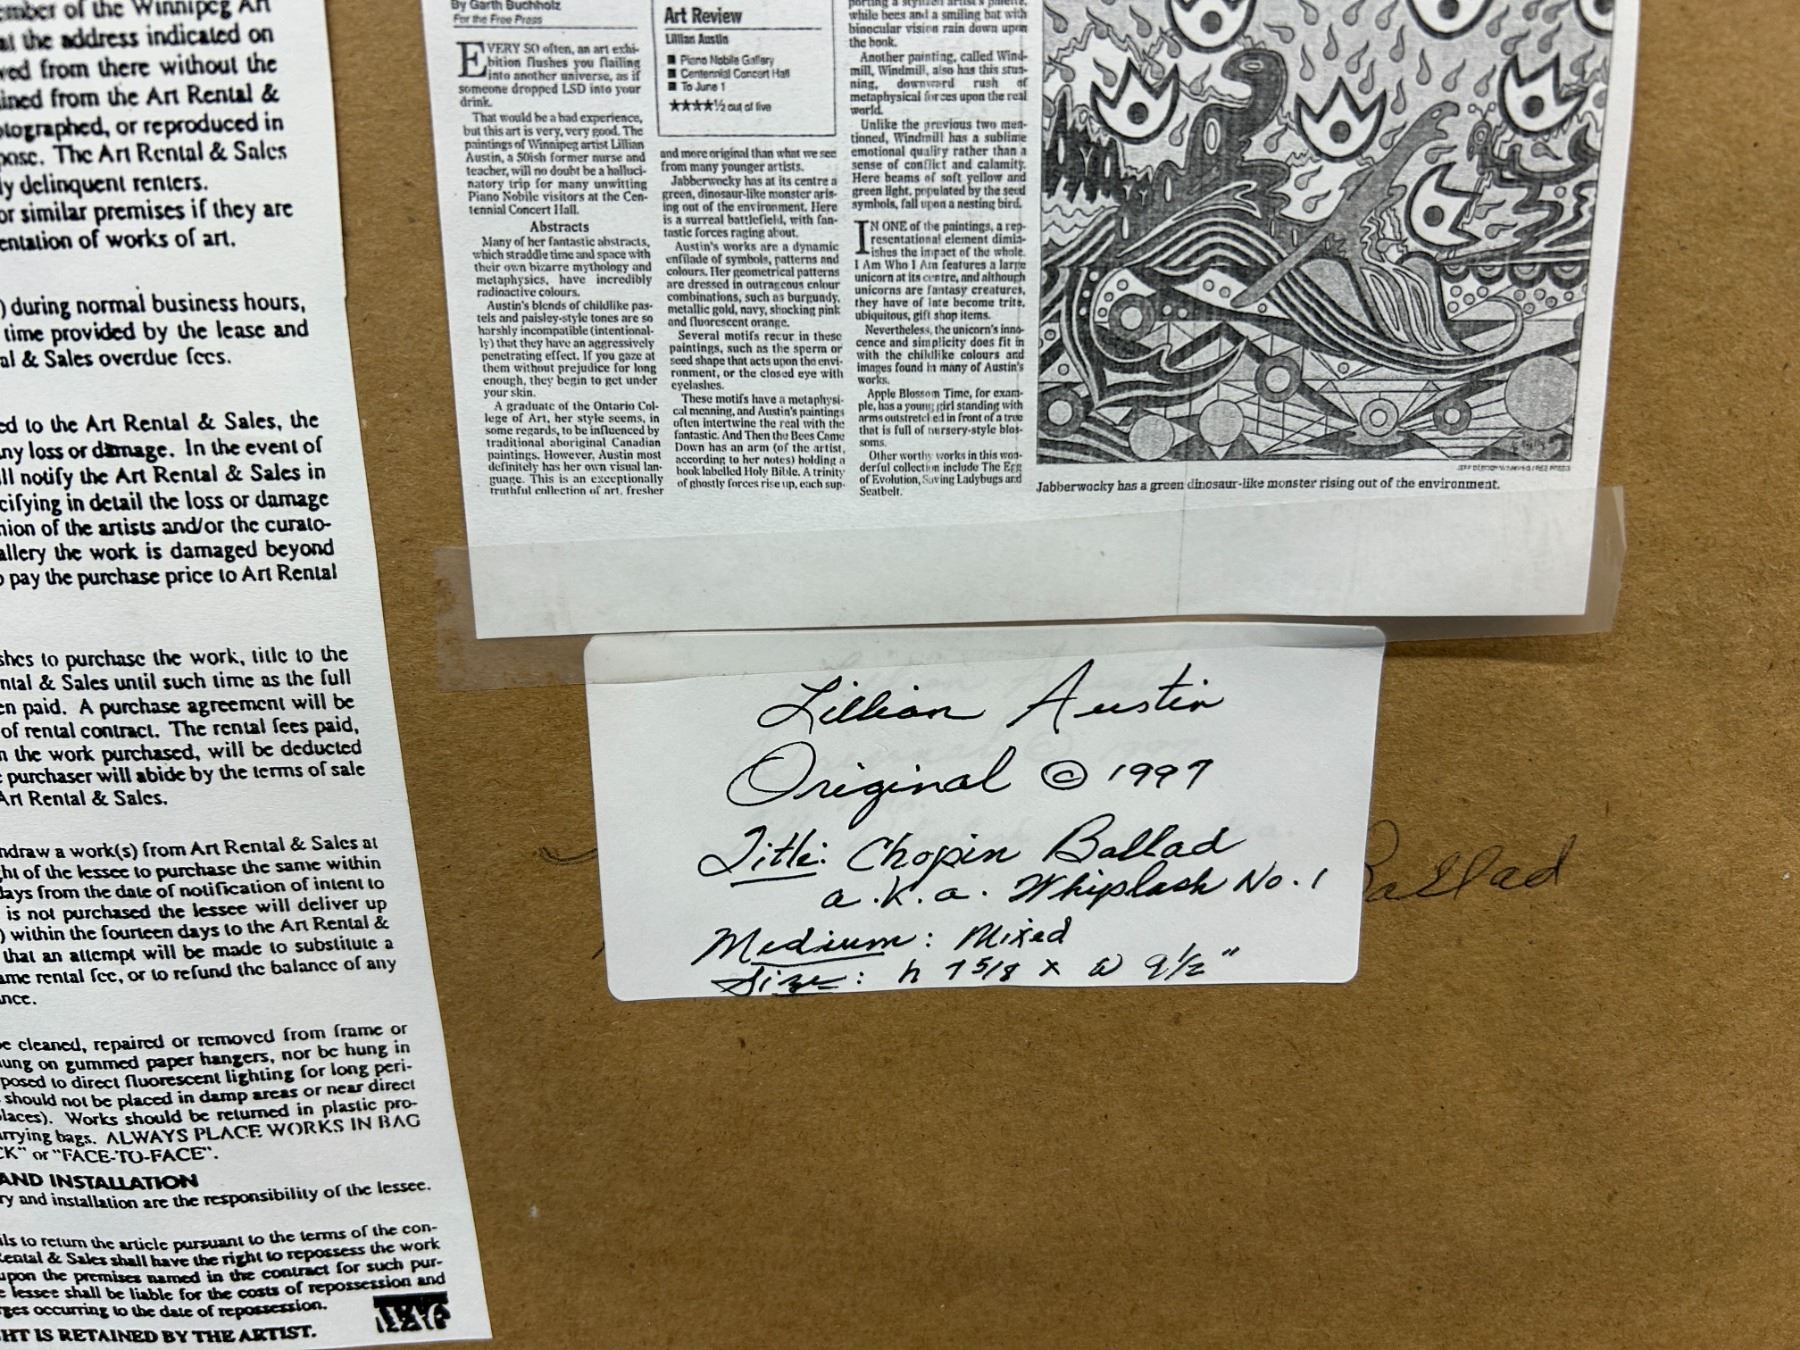 ember of the Winnipeg Art
at the address indicated on
ved from there without the
ined from the Art Rental &
otographed, or reproduced in
pose. The Art Rental & Sales
ly delinquent renters.
or similar premises if they are
entation of works of art.
) during normal business hours,
time provided by the lease and
al & Sales overdue fees.
ed to the Art Rental & Sales, the
ny loss or damage. In the event of
ll notify the Art Rental & Sales in
cifying in detail the loss or damage
nion of the artists and/or the curato-
allery the work is damaged beyond
o pay the purchase price to Art Rental
shes to purchase the work, title to the
ntal & Sales until such time as the full
en paid. A purchase agreement will be
of rental contract. The rental fees paid,
n the work purchased, will be deducted
e purchaser will abide by the terms of sale
Art Rental & Sales.
ndraw a work(s) from Art Rental & Sales at
ht of the lessee to purchase the same within
days from the date of notification of intent to
is not purchased the lessee will deliver up
) within the fourteen days to the Art Rental &
that an attempt will be made to substitute a
ame rental fee, or to refund the balance of any
nce.
e cleaned, repaired or removed from frame or
ung on gummed paper hangers, nor be hung in
posed to direct fluorescent lighting for long peri-
should not be placed in damp areas or near direct
laces). Works should be returned in plastic pro-
rrying bags. ALWAYS PLACE WORKS IN BAG
CK" or "FACE-TO-FACE".
AND INSTALLATION
ry and installation are the responsibility of the lessee.
ils to return the article pursuant to the terms of the con-
Rental & Sales shall have the right to repossess the work
upon the premises named in the contract for such pur-
e lessee shall be liable for the costs of repossession and
ges occurring to the date of repossession.
HT IS RETAINED BY THE ARTIST.
By Garth Buchholz
For the Free Press
EVERY SO often, an art exhi-
bition flushes you flailing
into another universe, as if
someone dropped LSD into your
drink.
That would be a bad experience,
but this art is very, very good. The
paintings of Winnipeg artist Lillian
Austin, a 50ish former nurse and
teacher, will no doubt be a halluci-
natory trip for many unwitting
Piano Nobile visitors at the Cen-
tennial Concert Hall.
Abstracts
Many of her fantastic abstracts,
which straddle time and space with
their own bizarre mythology and
metaphysics, have incredibly
radioactive colours.
Austin's blends of childlike pas-
tels and paisley-style tones are so
harshly incompatible (intentional-
ly) that they have an aggressively
penetrating effect. If you gaze at
them without prejudice for long
enough, they begin to get under
your skin.
A graduate of the Ontario Col-
lege of Art, her style seems, in
some regards, to be influenced by
traditional aboriginal Canadian
paintings. However, Austin most
definitely has her own visual lan-
guage. This is an exceptionally
truthful collection of art, fresher
Art Review
Lillian Austin
■ Piano Nobile Gallery
■ Centennial Concert Hall
■ To June 1
★★★★½ out of five
and more original than what we see
from many younger artists.
Jabberwocky has at its centre a
green, dinosaur-like monster aris-
ing out of the environment. Here
is a surreal battlefield, with fan-
tastic forces raging about.
Austin's works are a dynamic
enfilade of symbols, patterns and
colours. Her geometrical patterns
are dressed in outrageous colour
combinations, such as burgundy,
metallic gold, navy, shocking pink
and fluorescent orange.
Several motifs recur in these
paintings, such as the sperm or
seed shape that acts upon the envi-
ronment, or the closed eye with
eyelashes.
These motifs have a metaphysi-
cal meaning, and Austin's paintings
often intertwine the real with the
fantastic. And Then the Bees Came
Down has an arm (of the artist,
according to her notes) holding a
book labelled Holy Bible. A trinity
of ghostly forces rise up, each sup-
porting a stylized artist's palette,
while bees and a smiling bat with
binocular vision rain down upon
the book.
Another painting, called Wind-
mill, Windmill, also has this stun-
ning, downward rush of
metaphysical forces upon the real
world.
Unlike the previous two men-
tioned, Windmill has a sublime
emotional quality rather than a
sense of conflict and calamity.
Here beams of soft yellow and
green light, populated by the seed
symbols, fall upon a nesting bird.
IN ONE of the paintings, a rep-
resentational element dimin-
ishes the impact of the whole.
I Am Who I Am features a large
unicorn at its centre, and although
unicorns are fantasy creatures,
they have of late become trite,
ubiquitous, gift shop items.
Nevertheless, the unicorn's inno-
cence and simplicity does fit in
with the childlike colours and
images found in many of Austin's
works.
Apple Blossom Time, for exam-
ple, has a young girl standing with
arms outstretched in front of a tree
that is full of nursery-style blos-
soms.
Other worthy works in this won-
derful collection include The Egg
of Evolution, Saving Ladybugs and
Seatbelt.
Jabberwocky has a green dinosaur-like monster rising out of the environment.
Lillian Austin
Original © 1997
Title: Chopin Ballad
a.k.a. Whiplash No. 1
Medium: Mixed
Size: h 7 5/8 x w 9 1/2"
Ballad